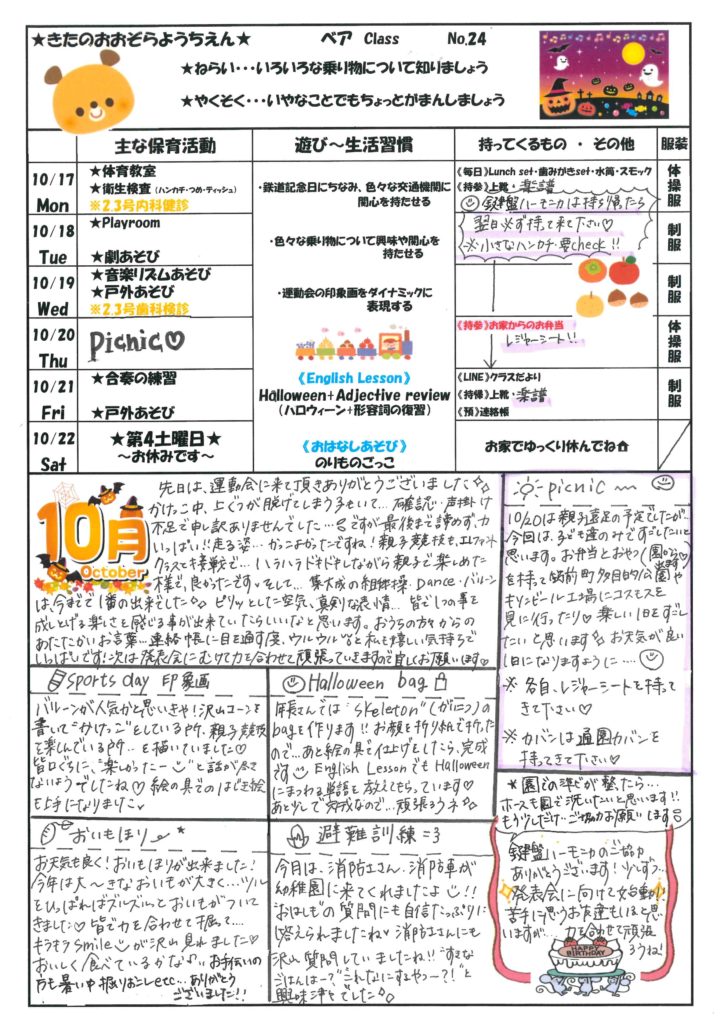 ★きたのおおぞらようちえん★ ベア Class No.24
★ねらい・・・いろいろな乗り物について知りましょう
★やくそく・・・いやなことでもちょっとがまんしましょう
主な保育活動 遊び～生活習慣 持ってくるもの ・ その他 服装
10/17 Mon
★体育教室
★衛生検査（ハンカチ・つめ・ティッシュ）
※2.3号内科健診
10/18 Tue
★Playroom
★劇あそび
10/19 Wed
★音楽リズムあそび
★戸外あそび
※2.3号歯科検診
10/20 Thu
Picnic♡
10/21 Fri
★合奏の練習
★戸外あそび
10/22 Sat
★第4土曜日★
～お休みです～
・鉄道記念日にちなみ、色々な交通機関に
関心を持たせる
・色々な乗り物について興味や関心を
持たせる
・運動会の印象画をダイナミックに
表現する
《English Lesson》
Halloween+Adjective review
（ハロウィーン+形容詞の復習）
《おはなしあそび》
のりものごっこ
《毎日》Lunch set・歯みがきset・水筒・スモック
《持参》上靴・楽譜
鍵盤ハーモニカは持ち帰ったら
翌日必ず持って来て下さい♡
※小さなハンカチ・要check!!
《持参》お家からのお弁当
レジャーシート!!
《LINE》クラスだより
《持帰》上靴・楽譜
《預》連絡帳
お家でゆっくり休んでね
体操服
制服
制服
体操服
制服
10月
October
先日は、運動会に来て頂きありがとうございました
かけっこ中、上ぐつが脱げてしまう子もいて…確認・声掛け
不足で申し訳ありませんでした…ですが最後まで諦めず、力
いっぱい!!走る姿…かっこよかったですね！親子競技も、エレファント
クラスを接戦で…ハラハラドキドキしながら親子で楽しめた
様で、良かったです。そして…集大成の組体操・Dance・バルーン
は、今までで1番の出来でした ピリッとした空気、真剣な表情…皆で1つの事を
成しとげる楽しさを感じる事が出来ていたらいいなと思います。おうちの方々からの
あたたかいお言葉…連絡帳に目を通す度、ウルウル…なと私も嬉しい気持ちで
いっぱいです!次は発表会にむけて力を合わせて頑張っていきますので宜しくお願います♡
picnic ～
10/20は親子遠足の予定でしたが…
今回は、子ども達のみですごしたいと
思います。お弁当とおやつ（園から出ます）
を持って筑前町多目的公園や
キリンビール工場にコスモスを
見に行ったり♡楽しい1日をすごし
たいと思います お天気が良い
1日になりますように…
※各自、レジャーシートを持って
きて下さい♡
※カバンは通園カバンを
持ってきて下さい♡
Sports day 印象画
バルーンが人気かと思いきや！沢山コーンを
書いて"かけっこ"をしている所、親子競技
を楽しんでいる所…を描いていました♡
皆口ぐちに、"楽しかったー"と話が尽き
ないようでしたね♡絵の具でのはじき絵
も上手になりました
Halloween bag
年長さんでは"skeleton"(がいこつ)の
bagを作ります!!お顔を折り紙で折った
ので…あと絵の具で仕上げをしたら、完成
です English LessonでもHalloween
にまつわる単語を教えてもらっています♡
あと少しで完成なので…頑張ろうネ
おいもほり
お天気も良く！おいもほりが出来ました！
今年は大～きなおいもが大きく…ツル
をひっぱればズルズルとおいもがついて
きました♡皆で力を合わせて掘って…
キラキラsmileが沢山見れました♡
おいしく食べているかな♪お手伝いの
方も暑い中掘りおこしetc…ありがとう
ございました!!
避難訓練=3
今日は、消防士さん、消防車が
幼稚園に来てくれましたよ!!
おはしもの質問にも自信たっぷりに
答えられましたね♡消防士さんにも
沢山質問していましたね!!"すきな
ごはんは～?""これなににすとやつ～?!"と
興味津々でした
＊園での準びが整ったら…
ホースも園で洗いたいと思います!!
もう少しだけ…ご協力お願いします
鍵盤ハーモニカのご協力
ありがとうございます！少しずつ
発表会に向けて始動
苦手に思うお友達もいると思
いますが…力を合わせて頑張
ろうね!
HAPPY
BIRTHDAY